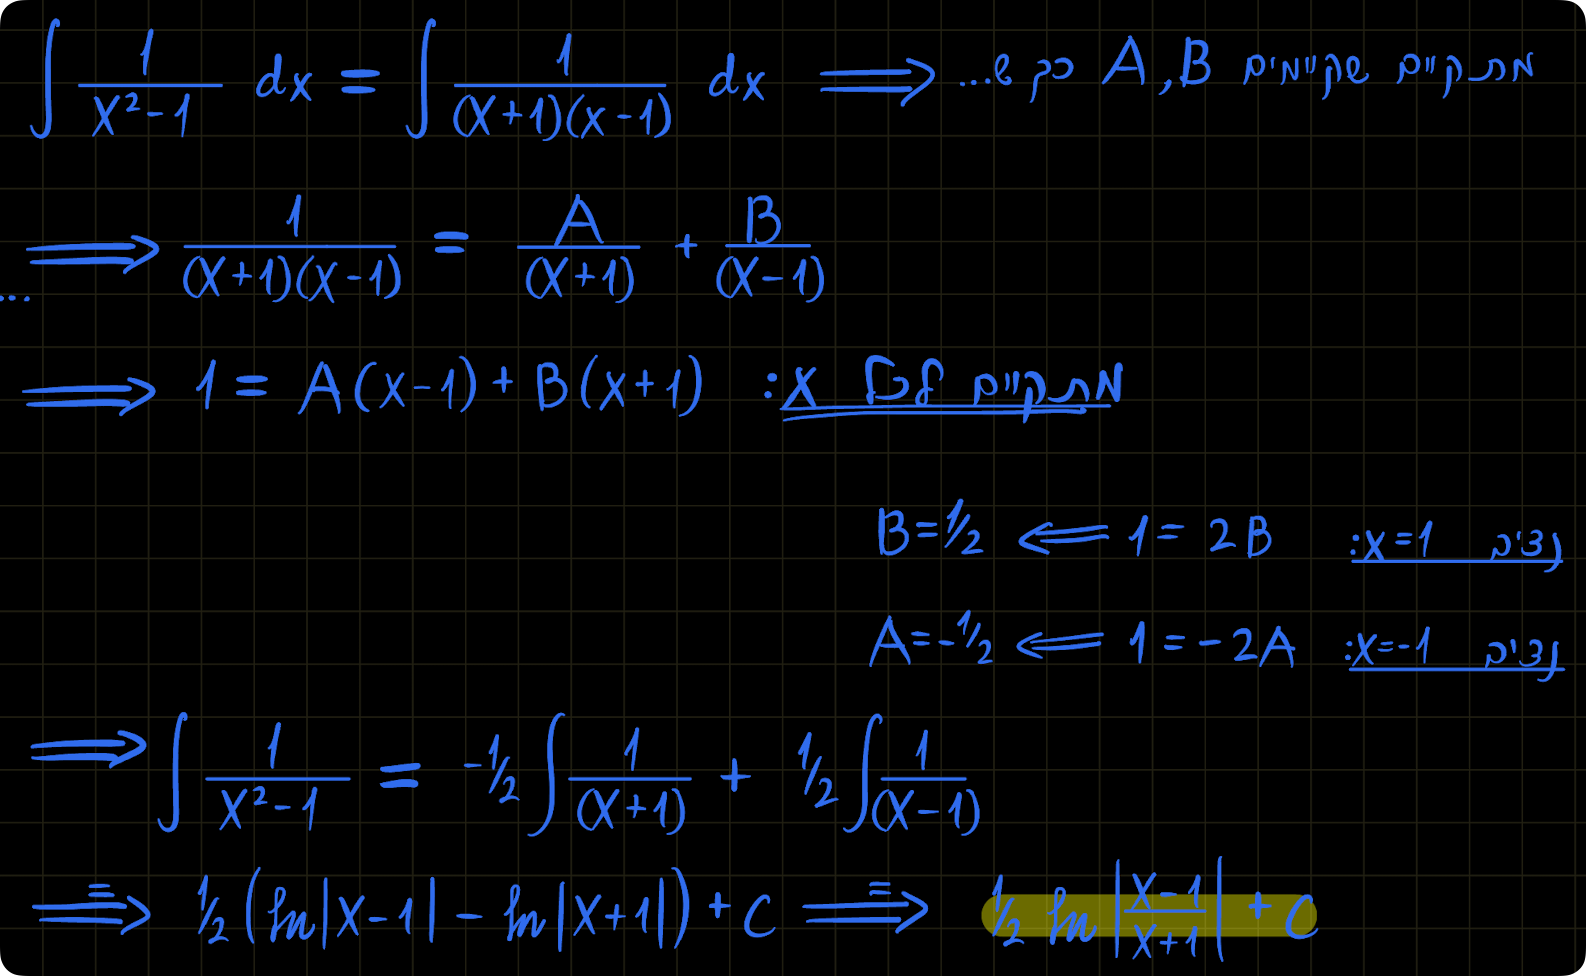 ∫ 1/(x²-1) dx = ∫ 1/((x+1)(x-1)) dx ⟹ מתקיים שקיימים A,B כך ש...
... ⟹ 1/((x+1)(x-1)) = A/(x+1) + B/(x-1)
⟹ 1 = A(x-1) + B(x+1) מתקיים לכל x:
נציב x=1: 1 = 2B ⟸ B=1/2
נציב x=-1: 1 = -2A ⟸ A=-1/2
⟹ ∫ 1/(x²-1) = -1/2 ∫ 1/(x+1) + 1/2 ∫ 1/(x-1)
=⟹ 1/2 (ln|x-1| - ln|x+1|) + C =⟹ 1/2 ln |(x-1)/(x+1)| + C